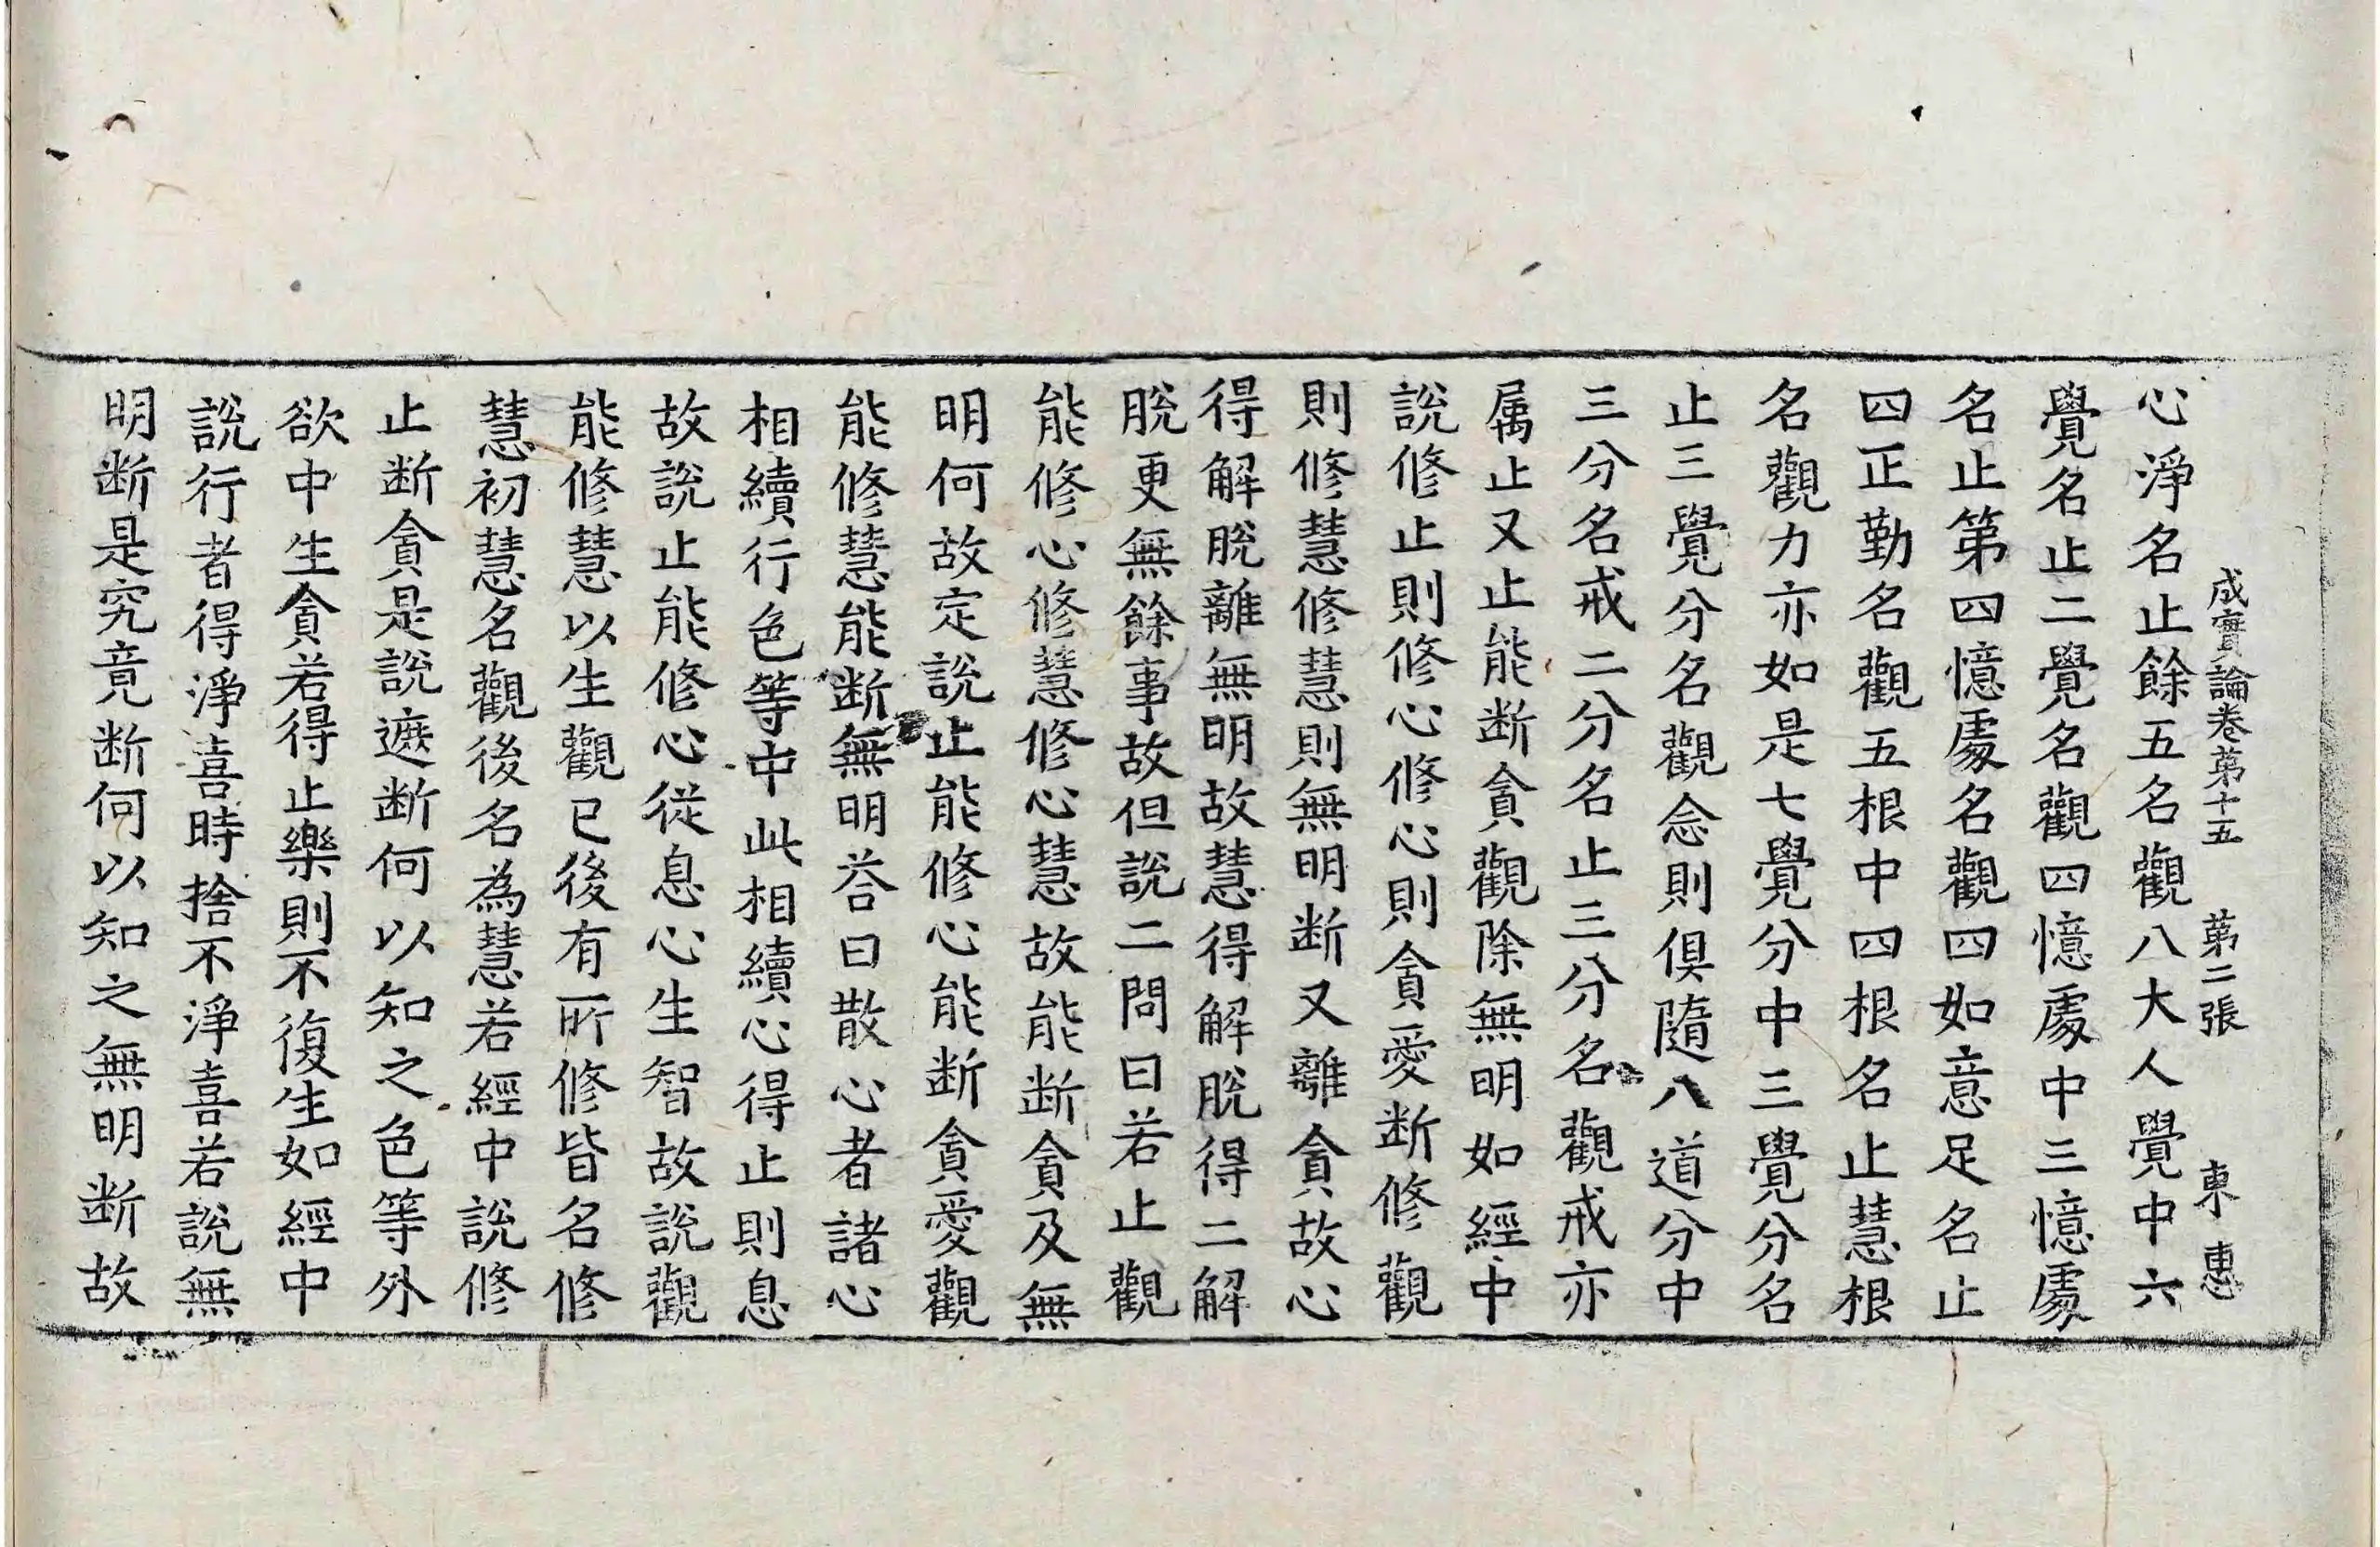 成實論卷苐十五 苐二張 東 惠
心淨名止餘五名觀八大人覺中六
覺名止二覺名觀四憶處中三憶處
名止第四憶處名觀四如意足名止
四正勤名觀五根中四根名止慧根
名觀力亦如是七覺分中三覺分名
止三覺分名觀念則俱隨八道分中
三分名戒二分名止三分名觀戒亦
属止又止能断貪觀除無明如經中
說修止則修心修心則貪愛断修觀
則修慧修慧則無明断又離貪故心
得解脫離無明故慧得解脫得二解
脫更無餘事故但說二問曰若止觀
能修心修慧修心慧故能断貪及無
明何故定說止能修心能断貪愛觀
能修慧能断無明荅曰散心者諸心
相續行色等中此相續心得止則息
故說止能修心從息心生智故說觀
能修慧以生觀已後有所修皆名修
慧初慧名觀後名為慧若經中說修
止断貪是說遮断何以知之色等外
欲中生貪若得止樂則不復生如經中
說行者得淨喜時捨不淨喜若說無
明断是究竟断何以知之無明断故